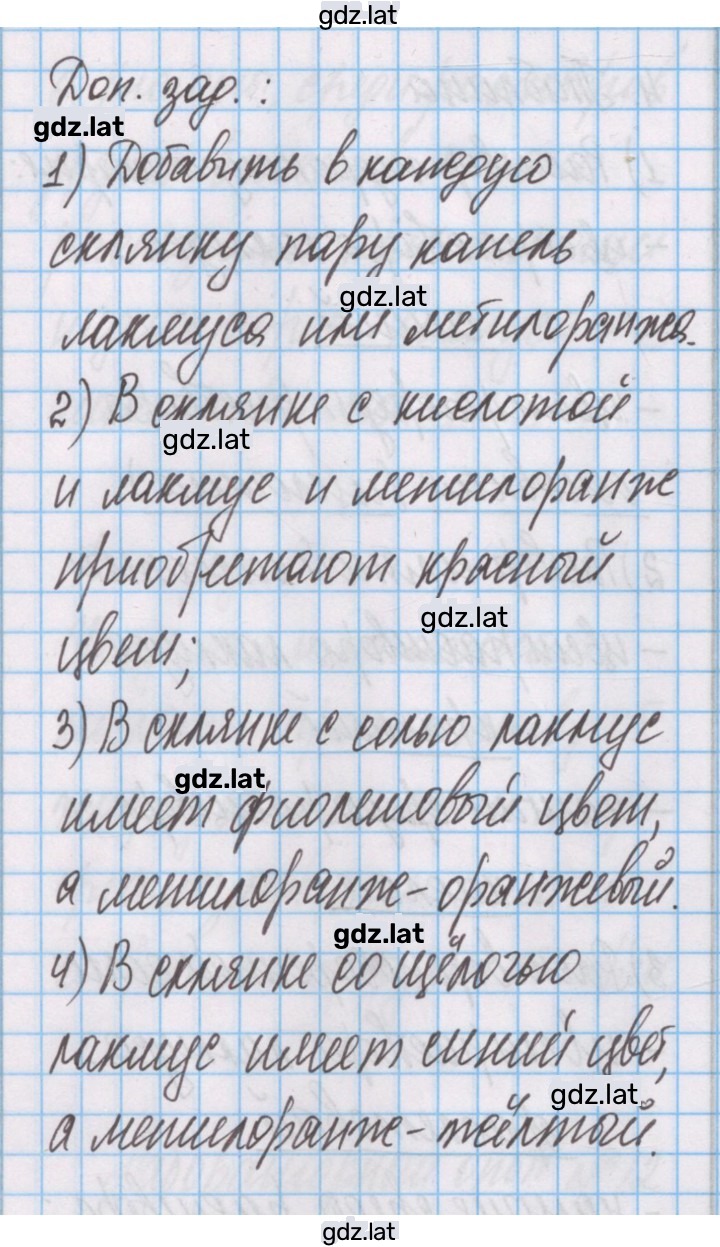 gdz.lat
Доп. зад.:
gdz.lat
1) Добавить в каждую
склянку пару капель
gdz.lat
лакмуса или метилоранжа.
2) В склянке с кислотой
gdz.lat
и лакмус и метилоранж
приобретают красный
gdz.lat
цвет;
3) В склянке с солью лакмус
gdz.lat
имеет фиолетовый цвет,
а метилоранж - оранжевый.
gdz.lat
4) В склянке со щёлочью
лакмус имеет синий цвет,
gdz.lat
а метилоранж - жёлтый.
gdz.lat